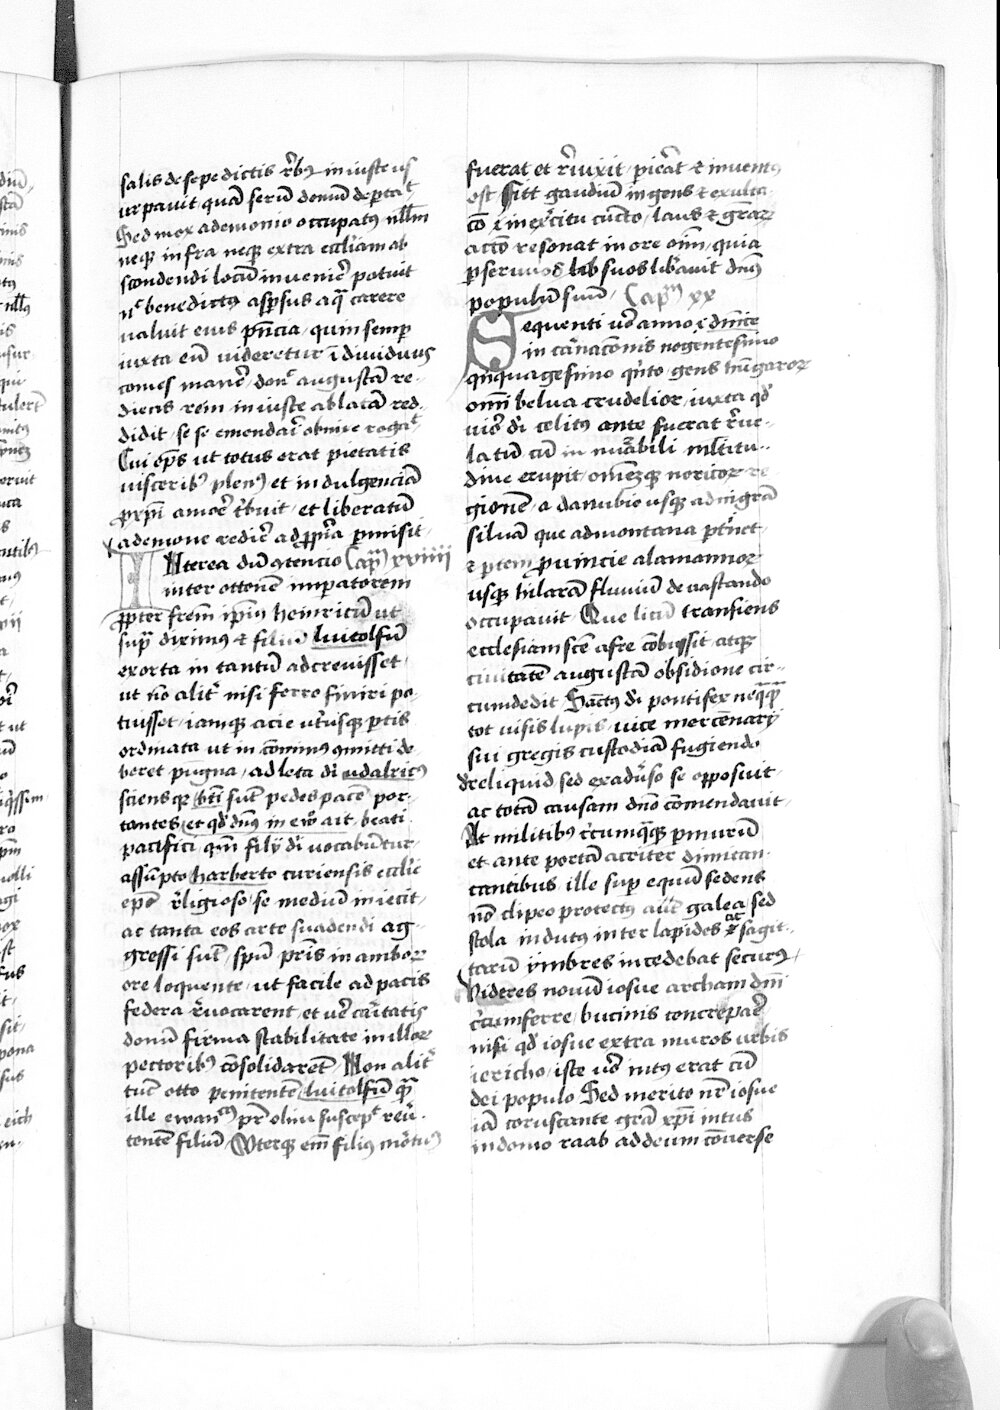 salis de sepe dictis rebꝫ iniuste us
urpavit quā serius domū deptat
Sed mox a demonio occupatꝰ nllm̄
neqꝫ infra neqꝫ extra eccliam ab
scondendi locū invenire potuit
nec benedictus asp̄sus aqua carere
valuit eius pn̄cia, quin semp̄
iuxta eū videretur īdividuus
comes manere, donec augustā re-
diens rem iniuste ablatā red-
didit, se se emendare obnixe rogat
Cui ep̄s ut totus erat pietatis
visceribꝰ plenꝰ et indulgenciā
pro xpi amore tribuit, et liberatū
a demone redire ad propria p̄misit
Interea dum ɔtencio Cap̄m xviiii
inter ottonem imperatorem
propter frem̄ ip̄ius heinricū ut
supra diximꝰ et filiū luitolfū
exorta in tantū adcrevisset
ut nō aliter nisi ferro finiri po-
tuisset, iamqꝫ acie utriusqꝫ p̄tis
ordinata ut in cōminus ɔmitti de-
beret pugna, athleta dī udalricꝰ
sciensqꝫ bt̄i sūt pedes pacē por-
tantes, et qd̓ dn̄s in ewā ait, beati
pacifici, qm̄ filii dī vocabūtur,
assūpto harberto curiensis ecclie
epō religioso, se mediū iniecit,
ac tanta eos arte suadendi ag-
gressi sūt, spū pr̄is in amborꝝ
ore loquente, ut facile ad pacis
federa revocarent, et verē caritatis
donū firma stabilitate in illorꝝ
pectoribꝰ cōsolidarent, Non aliter
tūc otto penitentē luitolfū quā
ille ewan pr̄ olim suscepit rever-
tentē filiū, Uterqꝫ em̄ filiꝰ mortuꝰ
fuerat et revixit, perierat et inventꝰ
est, Fitt gaudiū ingens et exulta
cō in exercitu cuncto, laus et grarꝝ
actio resonat in ore omn̄, quia
per servos suos liberavit dn̄s
populū suū, Cap̄m xx
Sequenti vero anno īdn̄ice
incarnaconis nogentesimo
quinquagesimo quinto gens hungarorꝝ
omni belua crudelior, iuxta qd̓
viro dī celitus ante fuerat reve-
latū cū innumerabili multitu-
dine erupit, omnemqꝫ noricorꝝ re-
gionem, a danubio usqꝫ ad nigrā
silvam que ad montana ptinet
et ptem provincie alamannorꝝ
usqꝫ hilaram fluvium devastando
occupavit Que licum transiens
ecclesiam sce afre cōbussit, atqꝫ
civitatē augustā obsidione cir-
cumdedit Sanctus dī pontifex nequaquā
tot visis lupis, vice mercennarii
sui gregis custodiā fugiendo
dereliquid, sed ex adverso se opposuit,
ac totā causam dn̄o cōmendavit,
At militibus circumquaqꝫ p murū
et ante portā acriter dimican-
cantibus, ille super equū sedens
nō clipeo protectus aut galea, sed
stola indutus inter lapides ac sagit-
tarū ymbres incedebat securꝰ,
Videres novū iosue archam dn̄i
circumferre, bucinis concrepare,
nisi qd̓ iosue extra muros urbis
iericho, iste vero intꝰ erat cū
dei populo Sed merito nr̄ iosue
iā coruscante grā xpī intus
in domo raab ad deum cōverse